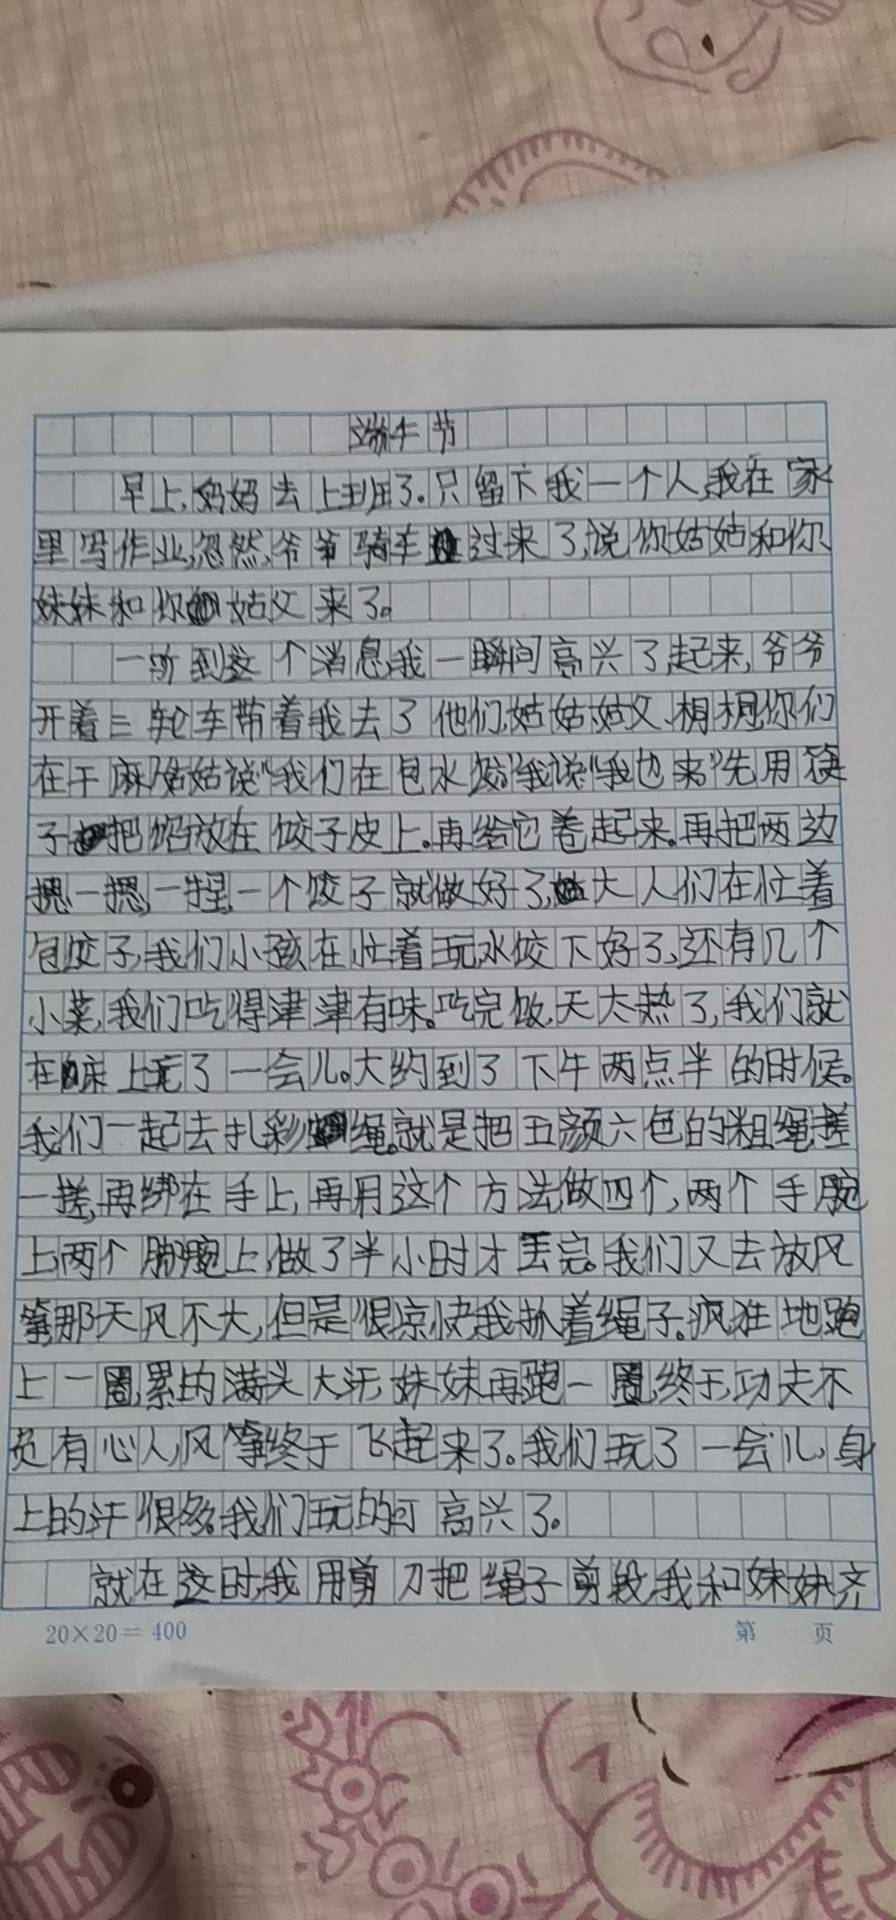 端午节
早上,妈妈去上班了。只留下我一个人,我在家
里写作业,忽然,爷爷骑车过来了,说你姑姑和你
妹妹和你姑父来了。
一听到这个消息,我一瞬间高兴了起来,爷爷
开着三轮车带着我去了他们,姑姑,姑父、相想你们
在干麻?姑姑说"我们在包水饺"我说"我也来"先用筷
子把馅放在饺子皮上。再给它卷起来。再把两边
摁一摁,一捏,一个饺子就做好了,大人们在忙着
包饺子,我们小孩在忙着玩,水饺下好了,还有几个
小菜,我们吃得津津有味。吃完饭,天太热了,我们就
在床上玩了一会儿。大约到了下午两点半的时候。
我们一起去扎彩绳。就是把五颜六色的粗绳搓
一搓,再绑在手上,再用这个方法做四个,两个手腕
上,两个脚腕上,做了半小时才弄完。我们又去放风
筝,那天风不大,但是很凉快,我扒着绳子。疯狂地跑
上一圈,累的满头大汗,妹妹再跑一圈,终于,功夫不
负有心人,风筝终于飞起来了。我们玩了一会儿,身
上的汗很多。我们玩的可高兴了。
就在这时,我用剪刀把绳子剪段,我和妹妹齐
20×20=400 第 页